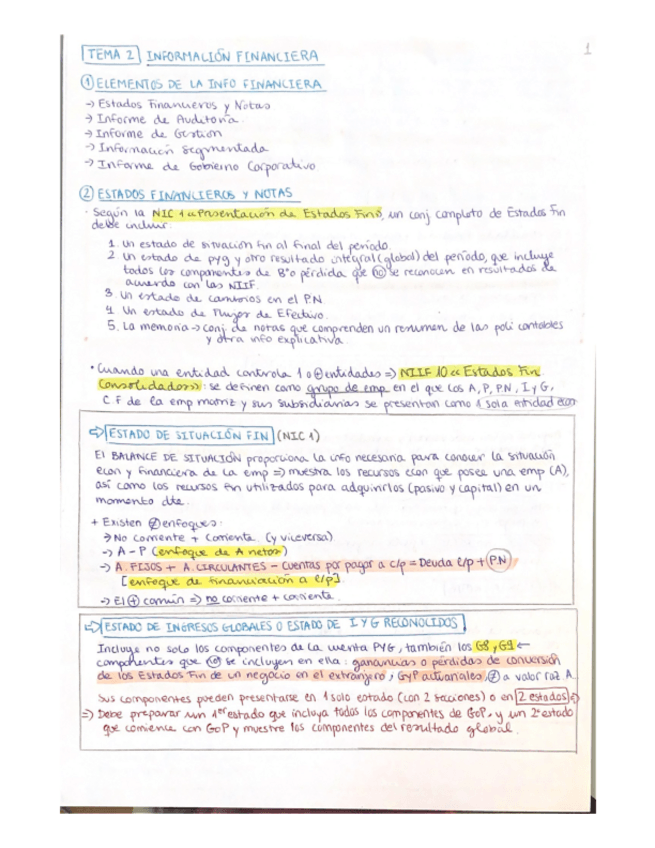 1
TEMA 2 INFORMACIÓN FINANCIERA
① ELEMENTOS DE LA INFO FINANCIERA
→ Estados Financieros y Notas
→ Informe de Auditoría.
→ Informe de Gestión
→ Información Segmentada
→ Informe de Gobierno Corporativo
② ESTADOS FINANCIEROS Y NOTAS
· Según la NIC 1 «Presentación de Estados Fin», un conj completo de Estados Fin
debe incluir:
1. Un estado de situación fin al final del período.
2 Un estado de pyg y otro resultado integral (global) del período, que incluye
todos los componentes de Bº o pérdida que NO se reconocen en resultados de
acuerdo con las NIIF.
3. Un estado de cambios en el P.N
4 Un estado de Flujos de Efectivo.
5. La memoria → conj de notas que comprenden un resumen de las poli contables
y otra info explicativa.
• Cuando una entidad controla 1 o ⊕ entidades ⇒ NIIF 10 «Estados Fin
Consolidados»: se definen como grupo de emp en el que los A, P, PN, I y G,
C.F de la emp matriz y sus subsidiarias se presentan como 1 sola entidad econ
⇨ ESTADO DE SITUACIÓN FIN (NIC 1)
El BALANCE DE SITUACIÓN proporciona la info necesaria para conocer la situación
econ y financiera de la emp ⇒ muestra los recursos econ que posee una emp (A),
así como los recursos fin utilizados para adquirirlos (pasivo y capital) en un
momento dte.
+ Existen ≠ enfoques:
→ No corriente + Corriente. (y viceversa)
→ A - P (enfoque de A netos)
→ A. FIJOS + A. CIRCULANTES - Cuentas por pagar a c/p = Deuda l/p + P.N
[enfoque de financiación a l/p]
→ El ⊕ común ⇒ no corriente + corriente.
⇨ ESTADO DE INGRESOS GLOBALES O ESTADO DE I Y G RECONOCIDOS
Incluye no solo los componentes de la cuenta PYG, también los G8 y G9 ←
componentes que NO se incluyen en ella: ganancias o pérdidas de conversión
de los Estados Fin de un negocio en el extranjero, GyP actuariales, ≠ a valor raz. A.
Sus componentes pueden presentarse en 1 solo estado (con 2 secciones) o en 2 estados ⇒
⇒ Debe preparar un 1er estado que incluya todos los componentes de GoP, y un 2º estado
que comience con GoP y muestre los componentes del resultado global.